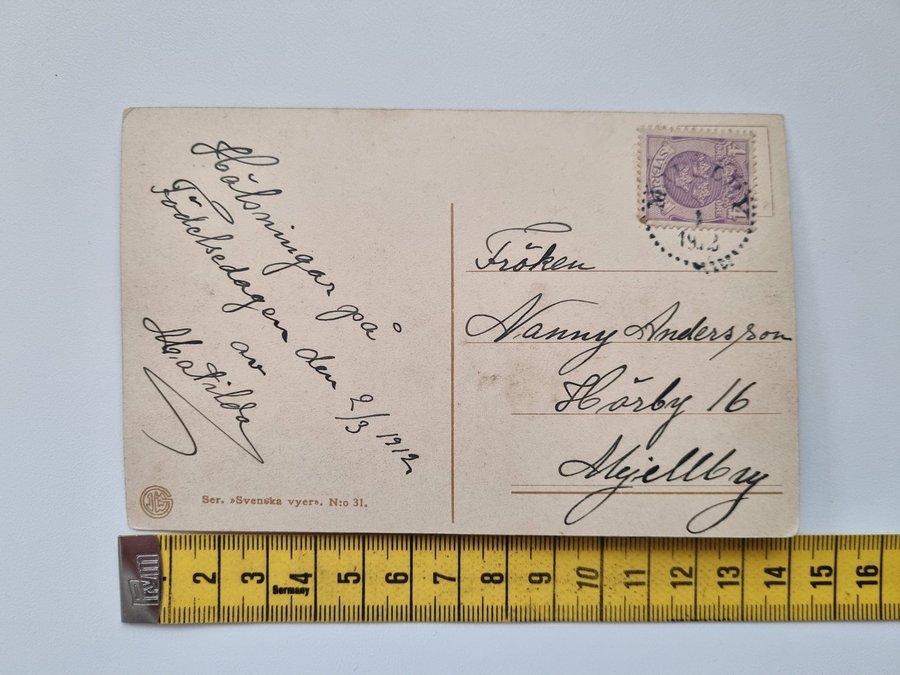 Hälsningar på
Födelsedagen den 2/3 1912
av
Matilda
Fröken
Nanny Andersson
Hörby 16
Mjellby
1912
Ser. »Svenska vyer». N:o 31.
2 3 4 5 6 7 8 9 10 11 12 13 14 15 16
Germany